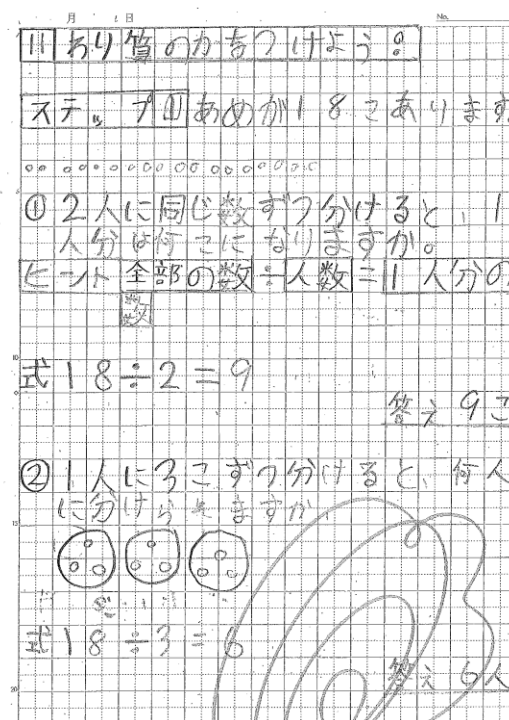 月 日 No.
11 わり算のかきつけよう!
ステップ1 あめが18こあります
①2人に同じ数ずつ分けると、1
人分は何こになりますか。
ヒント 全部の数÷人数=1人分の
数
10
式18÷2=9
答え 9こ
②1人に3こずつ分けると、何人
に分けられますか
15
式18÷3=6
答え 6人
20